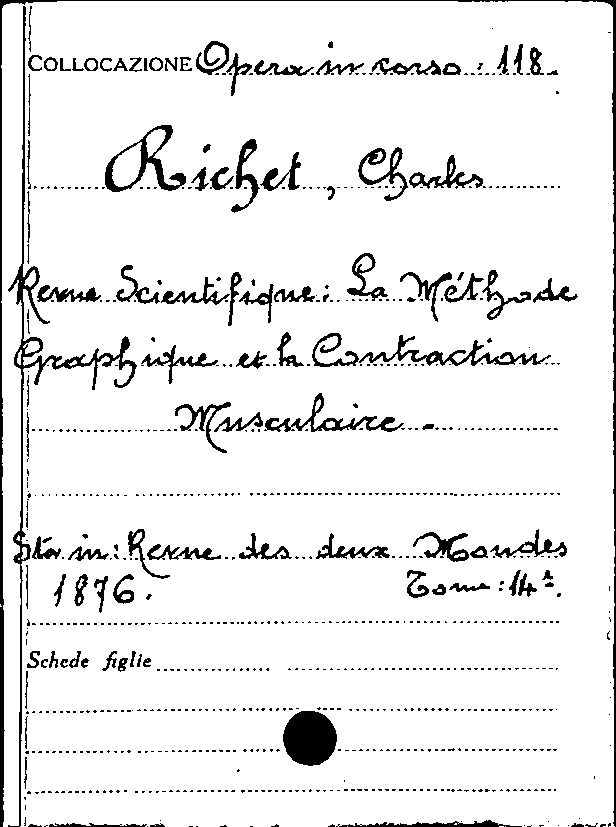 COLLOCAZIONE Opera in corso. 118.
Richet, Charles
Revue Scientifique: La Méthode
Graphique et la Contraction
Musculaire.
Sta in: Revue des deux Mondes
1876. Tome: 14º.
Schede figlie